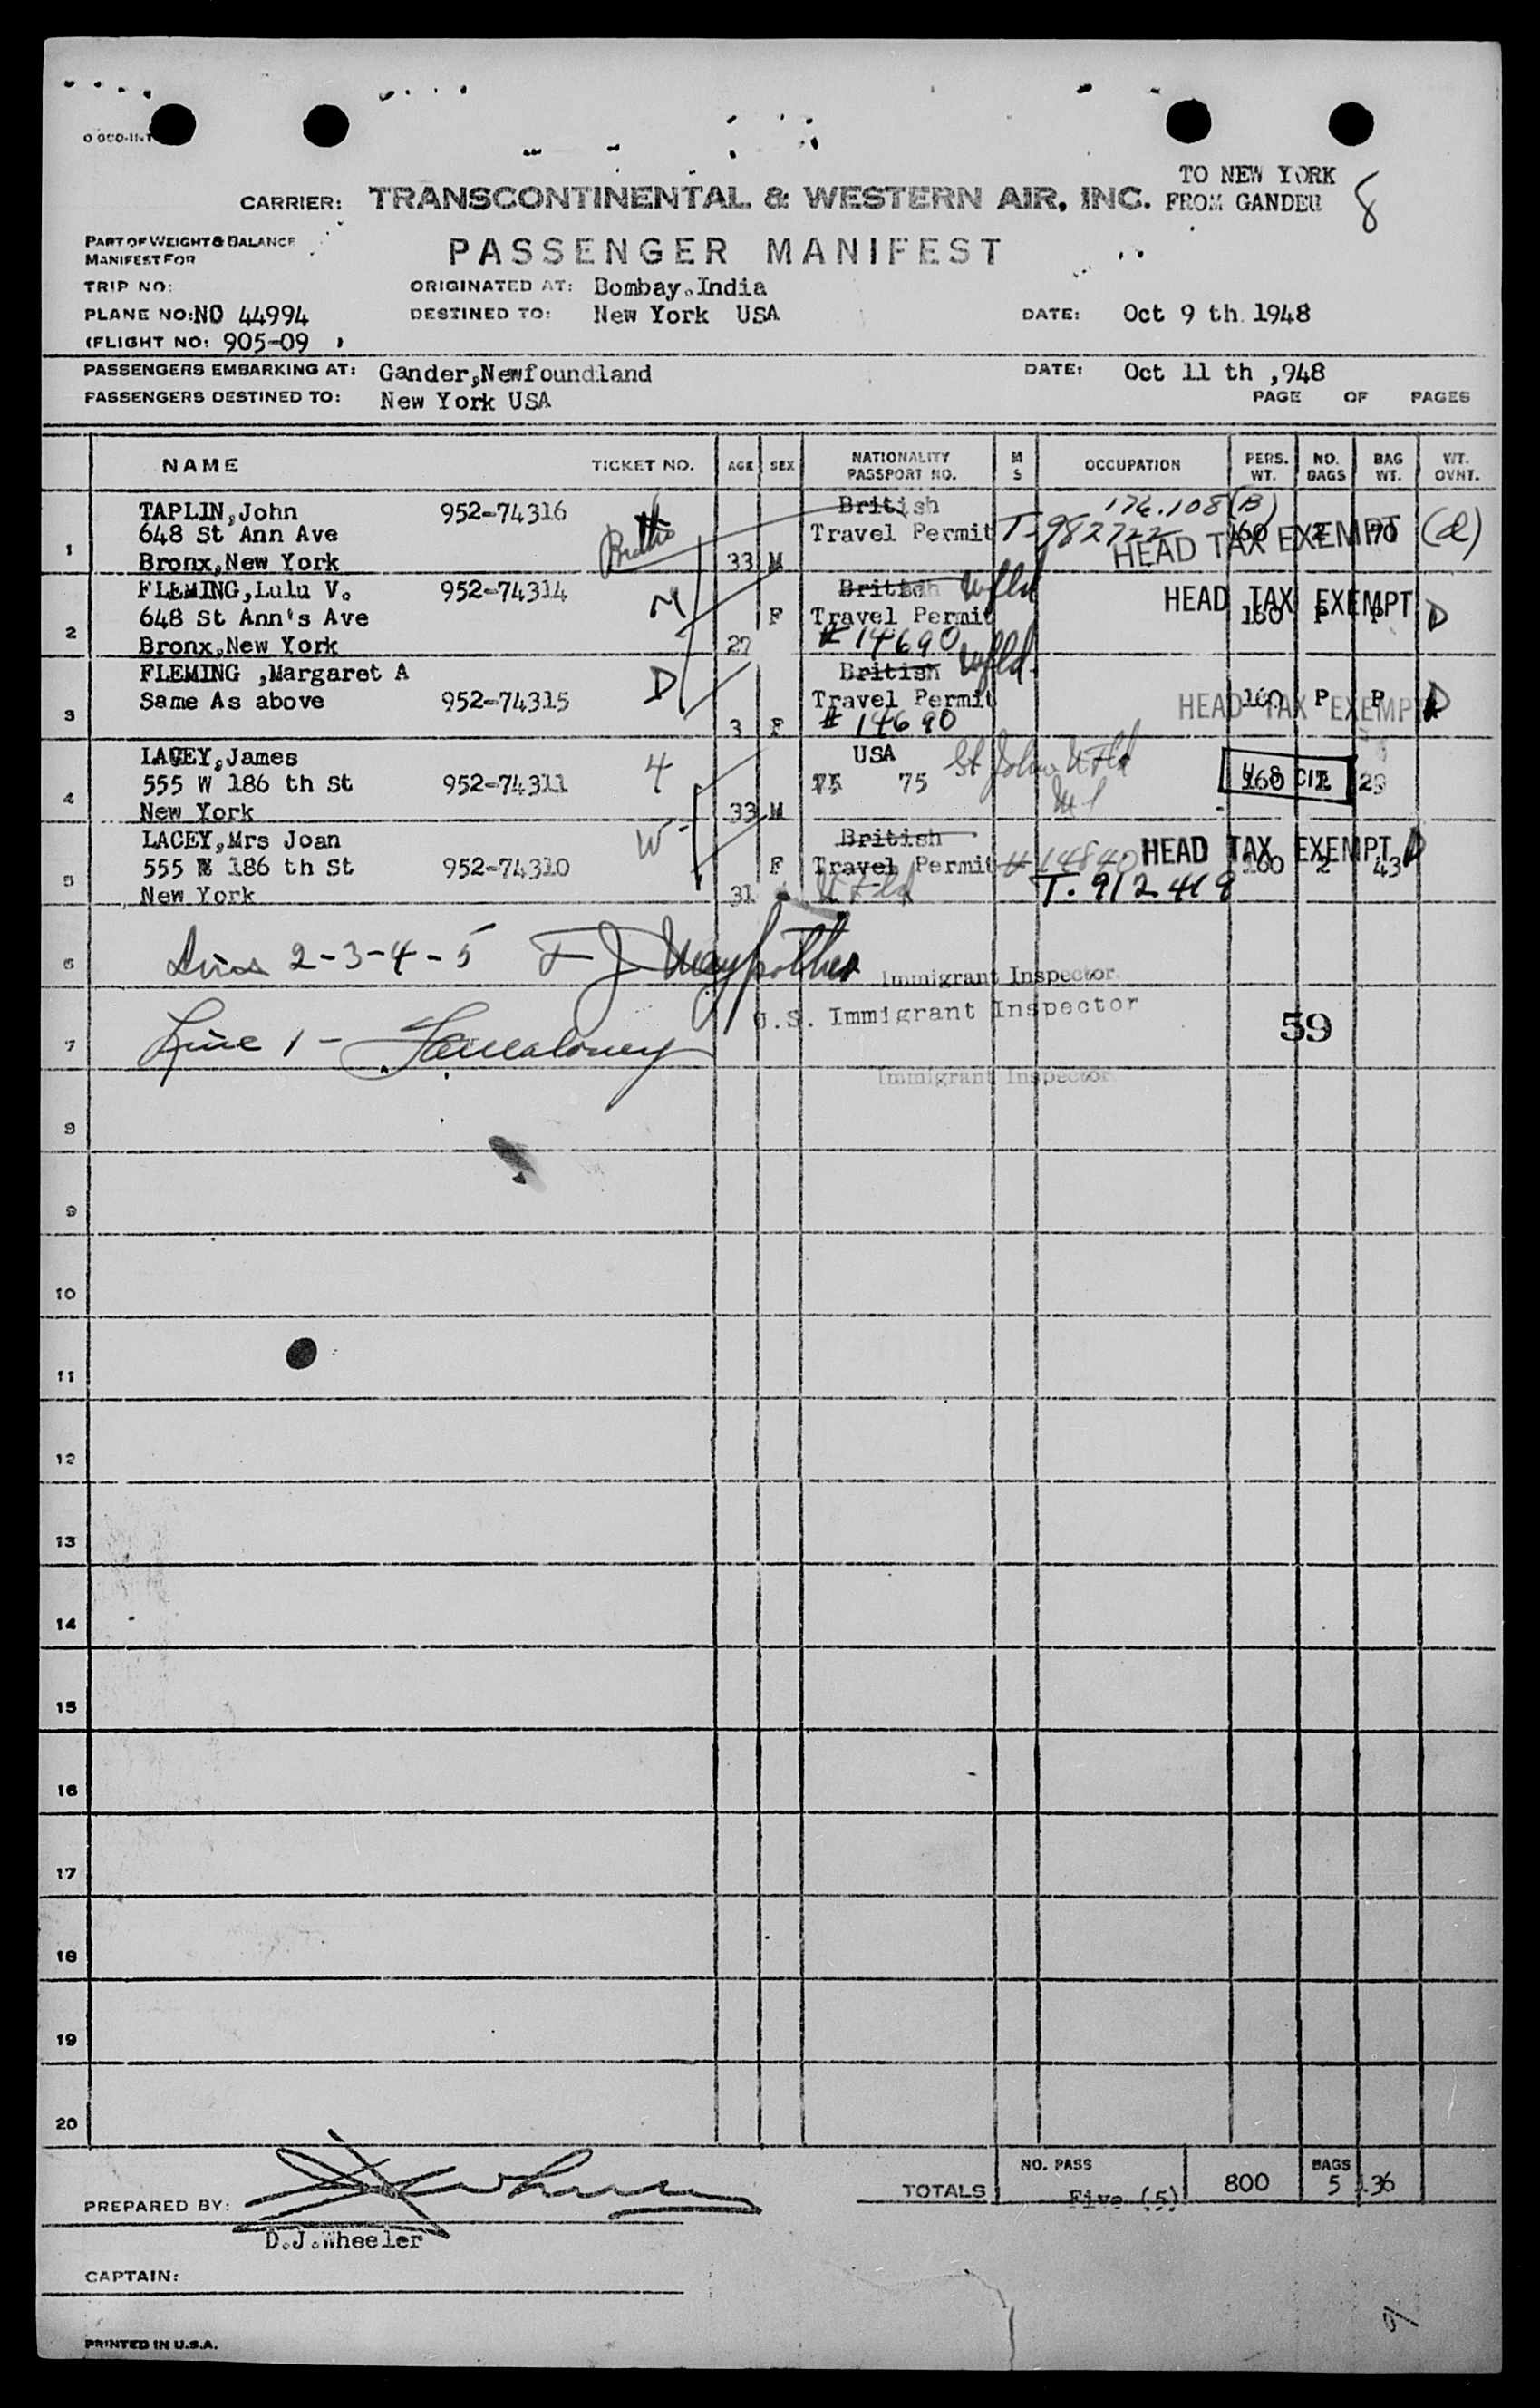 TO NEW YORK
CARRIER: TRANSCONTINENTAL & WESTERN AIR, INC. FROM GANDER 8
PART OF WEIGHT & BALANCE
MANIFEST FOR
PASSENGER MANIFEST
TRIP NO: ORIGINATED AT: Bombay.India
PLANE NO: NO 44994 DESTINED TO: New York USA DATE: Oct 9 th 1948
(FLIGHT NO: 905-09 )
PASSENGERS EMBARKING AT: Gander,Newfoundland DATE: Oct 11 th ,948
PASSENGERS DESTINED TO: New York USA PAGE OF PAGES
NAME TICKET NO. AGE SEX NATIONALITY PASSPORT NO. M S OCCUPATION PERS. WT. NO. BAGS BAG WT. WT. OVNT.
TAPLIN,John 952-74316 British 176.108 (B)
1 648 St Ann Ave Travel Permit T-982722 160 2 70 (d)
Bronx,New York 33 M HEAD TAX EXEMPT
FLEMING,Lulu V. 952-74314 British Nfld HEAD TAX EXEMPT
2 648 St Ann's Ave M F Travel Permit 160 P P D
Bronx,New York 27 # 14690
FLEMING ,Margaret A British Nfld.
3 Same As above 952-74315 D Travel Permit HEAD TAX EXEMPT 160 P P D
3 F # 14690
LACEY,James 4 USA St John's Nfld
4 555 W 186 th St 952-74311 75 75 U S CIT 160 1 23
New York 33 M
LACEY,Mrs Joan W British HEAD TAX EXEMPT D
5 555 W 186 th St 952-74310 F Travel Permit # 14840 160 2 43
New York 31 NFld T-912419
6 Lines 2-3-4-5 Immigrant Inspector
U.S. Immigrant Inspector
7 Line 1 - 59
Immigrant Inspector
8
9
10
11
12
13
14
15
16
17
18
19
20
TOTALS NO. PASS Five (5) 800 BAGS 5 136
PREPARED BY:
D.J.Wheeler
CAPTAIN:
PRINTED IN U.S.A.